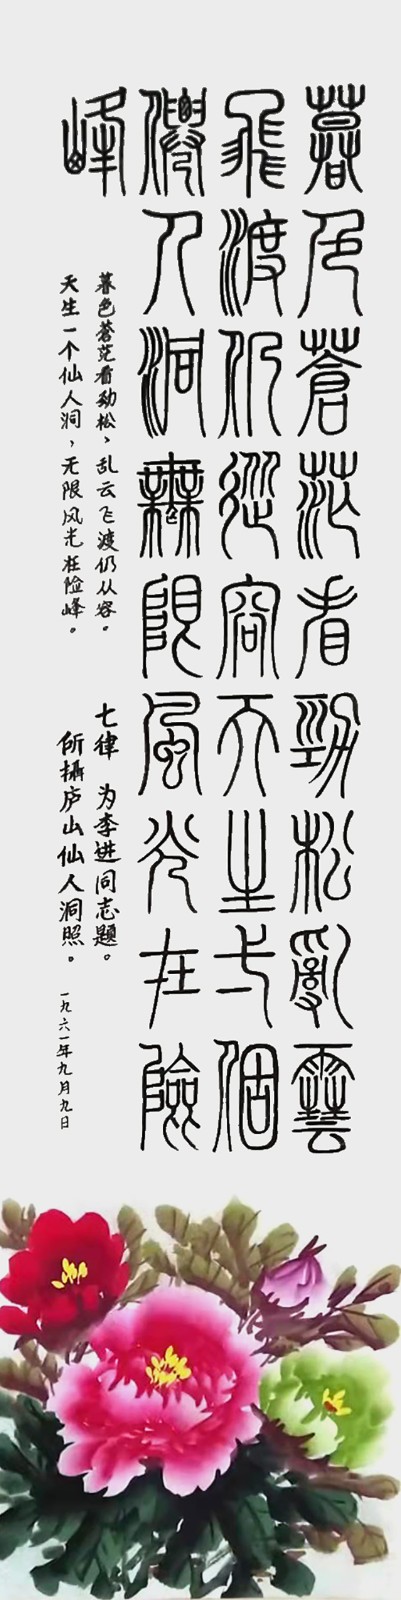 暮色蒼茫看勁松亂雲
飛渡仍從容天生一個
僊人洞無限風光在險
峰
暮色蒼茫看劲松，乱云飞渡仍从容。
天生一个仙人洞，无限风光在险峰。
七律 为李进同志题。
所攝庐山仙人洞照。
一九六一年九月九日